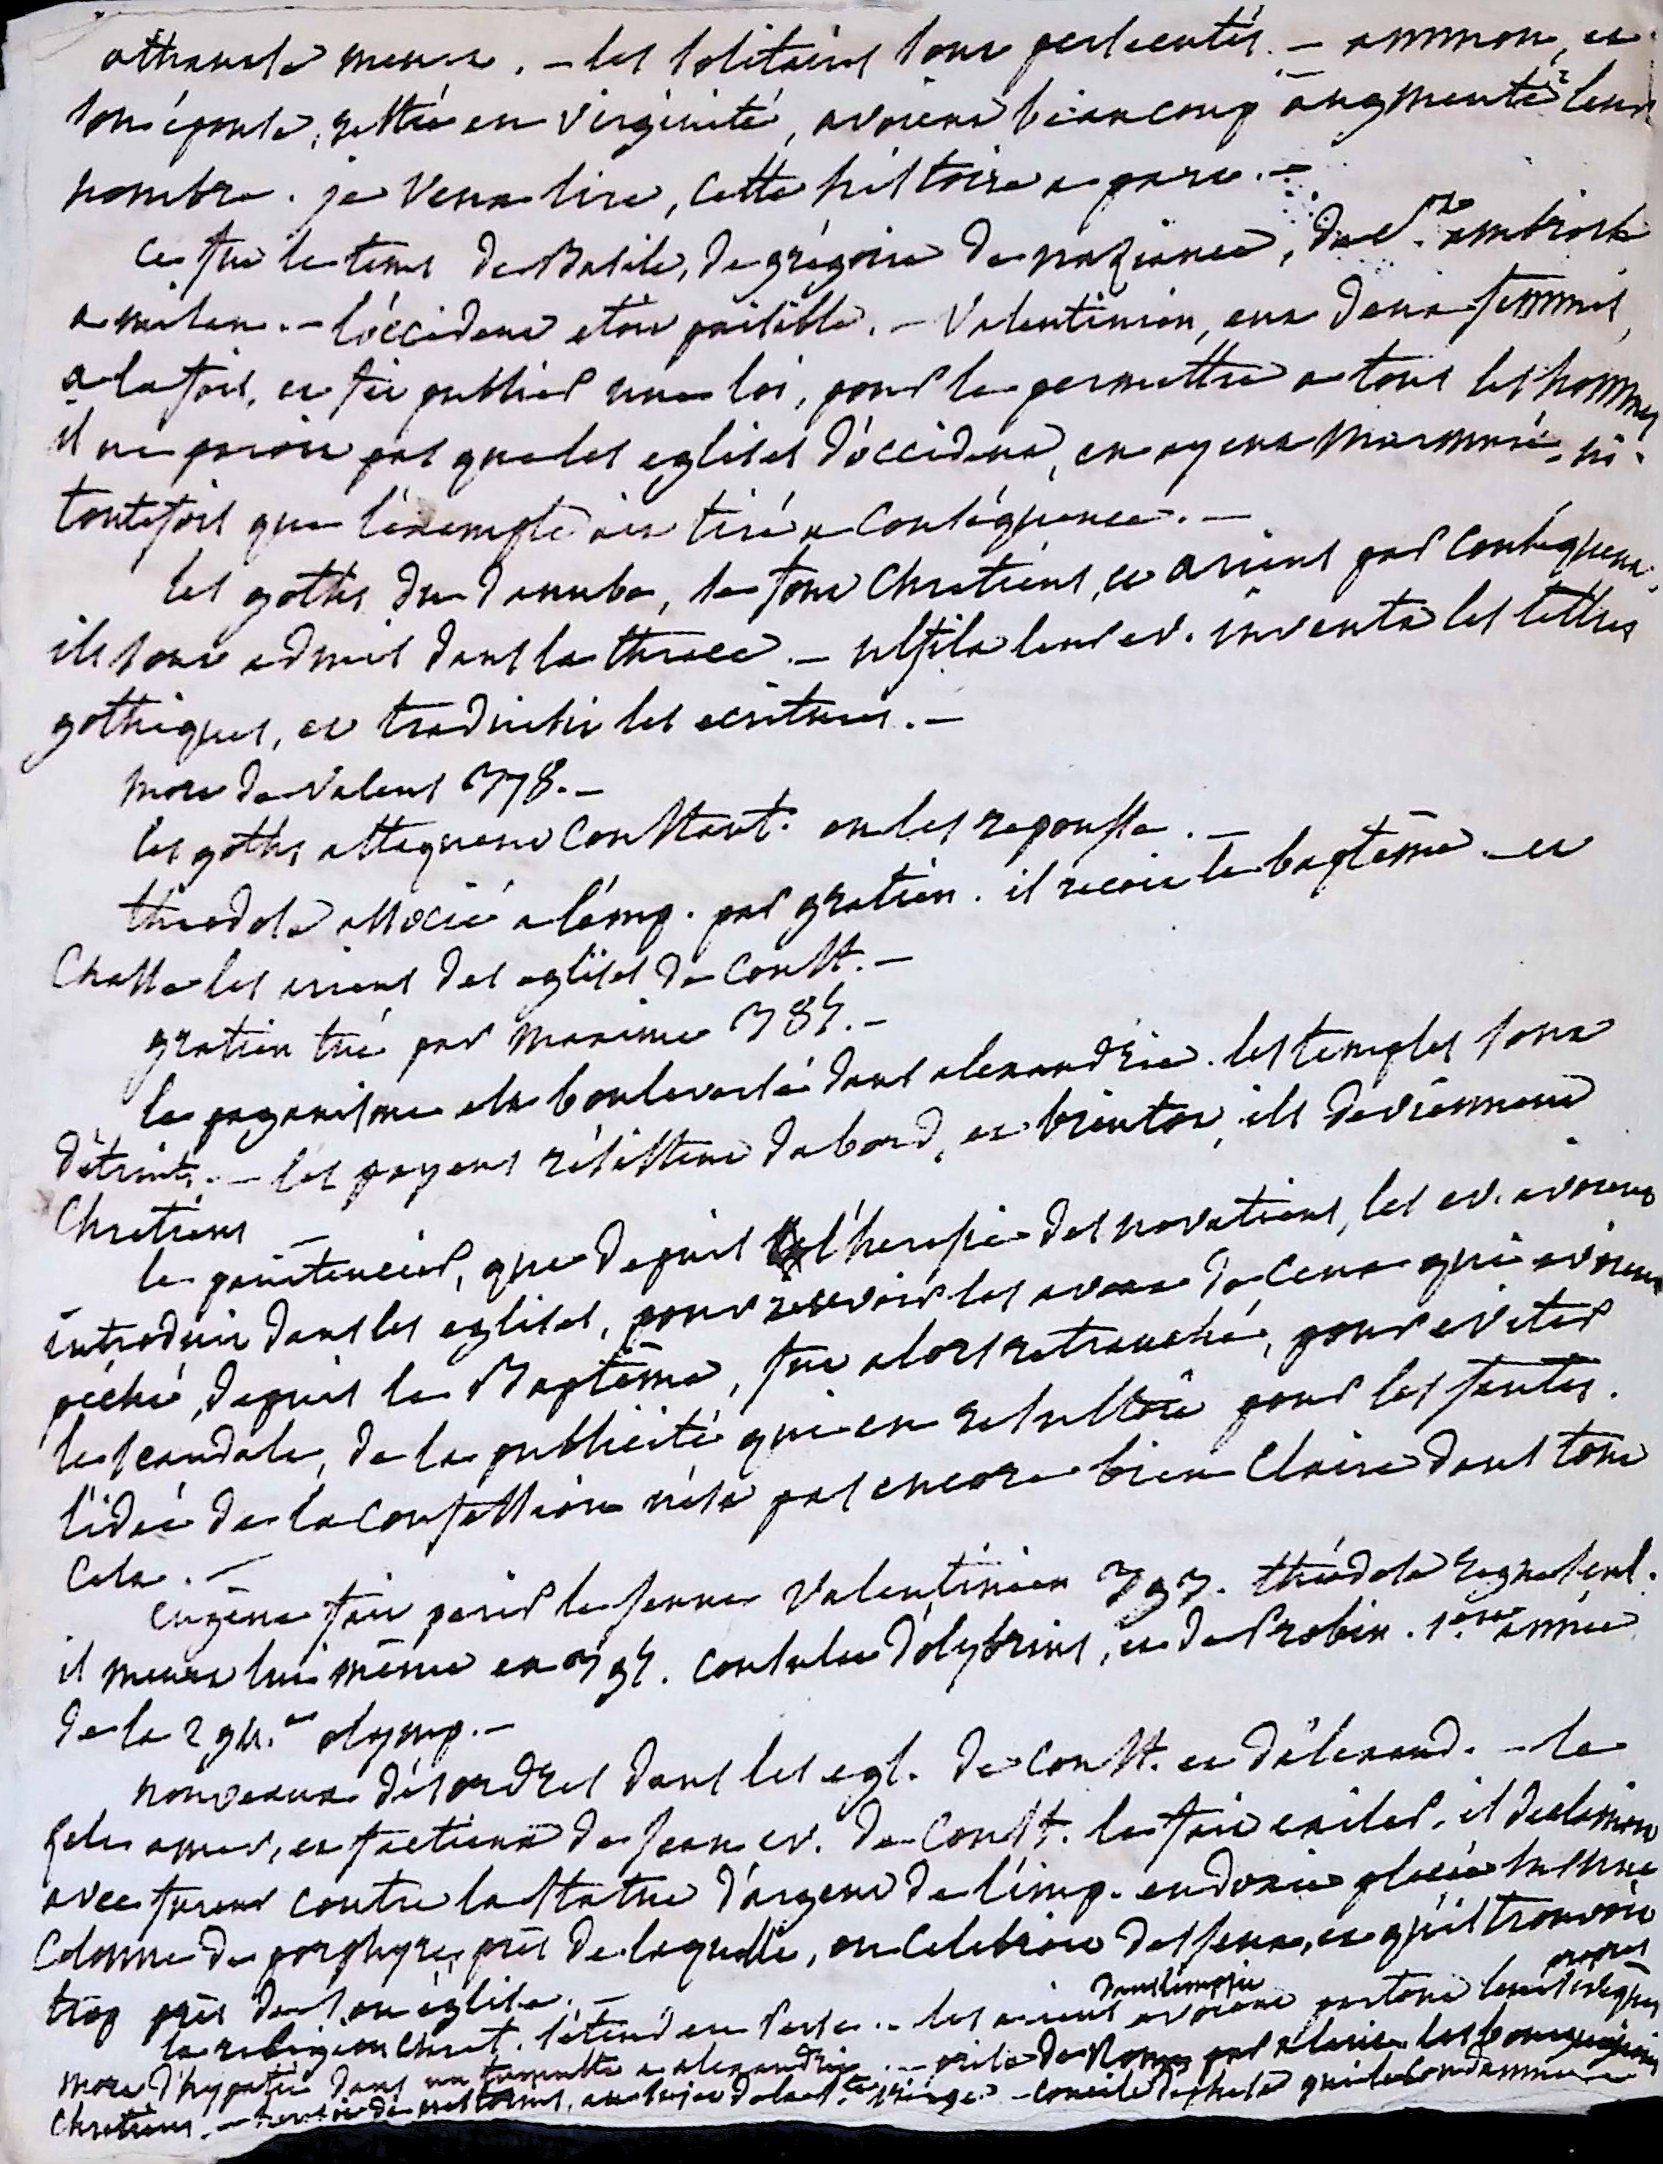 athanase meurt. – les solitaires sont persécutés. – ammon, et
son épouse, restée en virginité, avoient beaucoup augmenté leur
nombre. je veux lire, cette histoire a part. –
ce fut le tems de Basile, de grégoire de nazianze, de St. ambroise
a milan. – l'occident etoit paisible. – Valentinien, eut deux femmes,
a la fois, et fit publier une loi, pour le permettre a tous les hommes
il ne paroit pas que les eglises d'occident, en ayent murmuré, ni
toutefois que l'exemple ait tiré a conséquence. –
les goths du danube, se font chretiens, et ariens par conséquent.
ils sont admis dans la thrace. – ulfila leur ev. inventa les lettres
gothiques, et traduisit les ecritures. –
mort de valens 378. –
les goths attaquent Constant. on les repousse. –
théodose associé a l'emp. par gratien. il recoit le baptême – et
chasse les ariens des eglises de Const. –
gratien tué par maxime 385. –
le paganisme est bouleversé dans alexandrie. les temples sont
détruits. – les payens résistent dabord, et bientot, ils deviennent
Chretiens –
le penitencier, que depuis l'heresie des novatiens, les ev. avoient
introduit dans les eglises, pour recevoir les aveux de ceux qui avoient
péché, depuis le Baptême, fut alors retranché, pour eviter
le scandale, de la publicité qui en resultoit pour les fautes.
l'idée de la confession n'est pas encore bien claire dans tout
cela. –
eugène fait perir le jeune Valentinien 393. théodose regne seul.
il meurt lui même en 395. consulat d'olybrius, et de Probin. 1.ere année
de la 294.e olymp. –
nouveaux désordres dans les egl. de Const. et d'alexand. – le
zele amer, et factieux de Jean ev. de Const. le fait exiler. il declamoit
avec fureur contre la statue d'argent de l'imp. eudoxie placée sur une
colonne de porphyre, près de laquelle, on celebroit des jeux, et qu'il trouvoit
trop près de son église. –
la religion chret. s'étend en Perse. – les ariens dans l'empire avoient partout leurs propres evêques
mort d'hypatie dans un tumulte a alexandrie. – prise de Rome par alaric. les bourguignons
Chretiens. – heresie de nestorius, au sujet de la Ste. vierge. – concile d'ephese qui le condamne